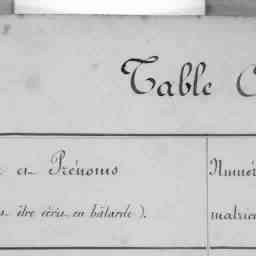 Table
et Prénoms
être écrits en bâtarde).
Numér
matric